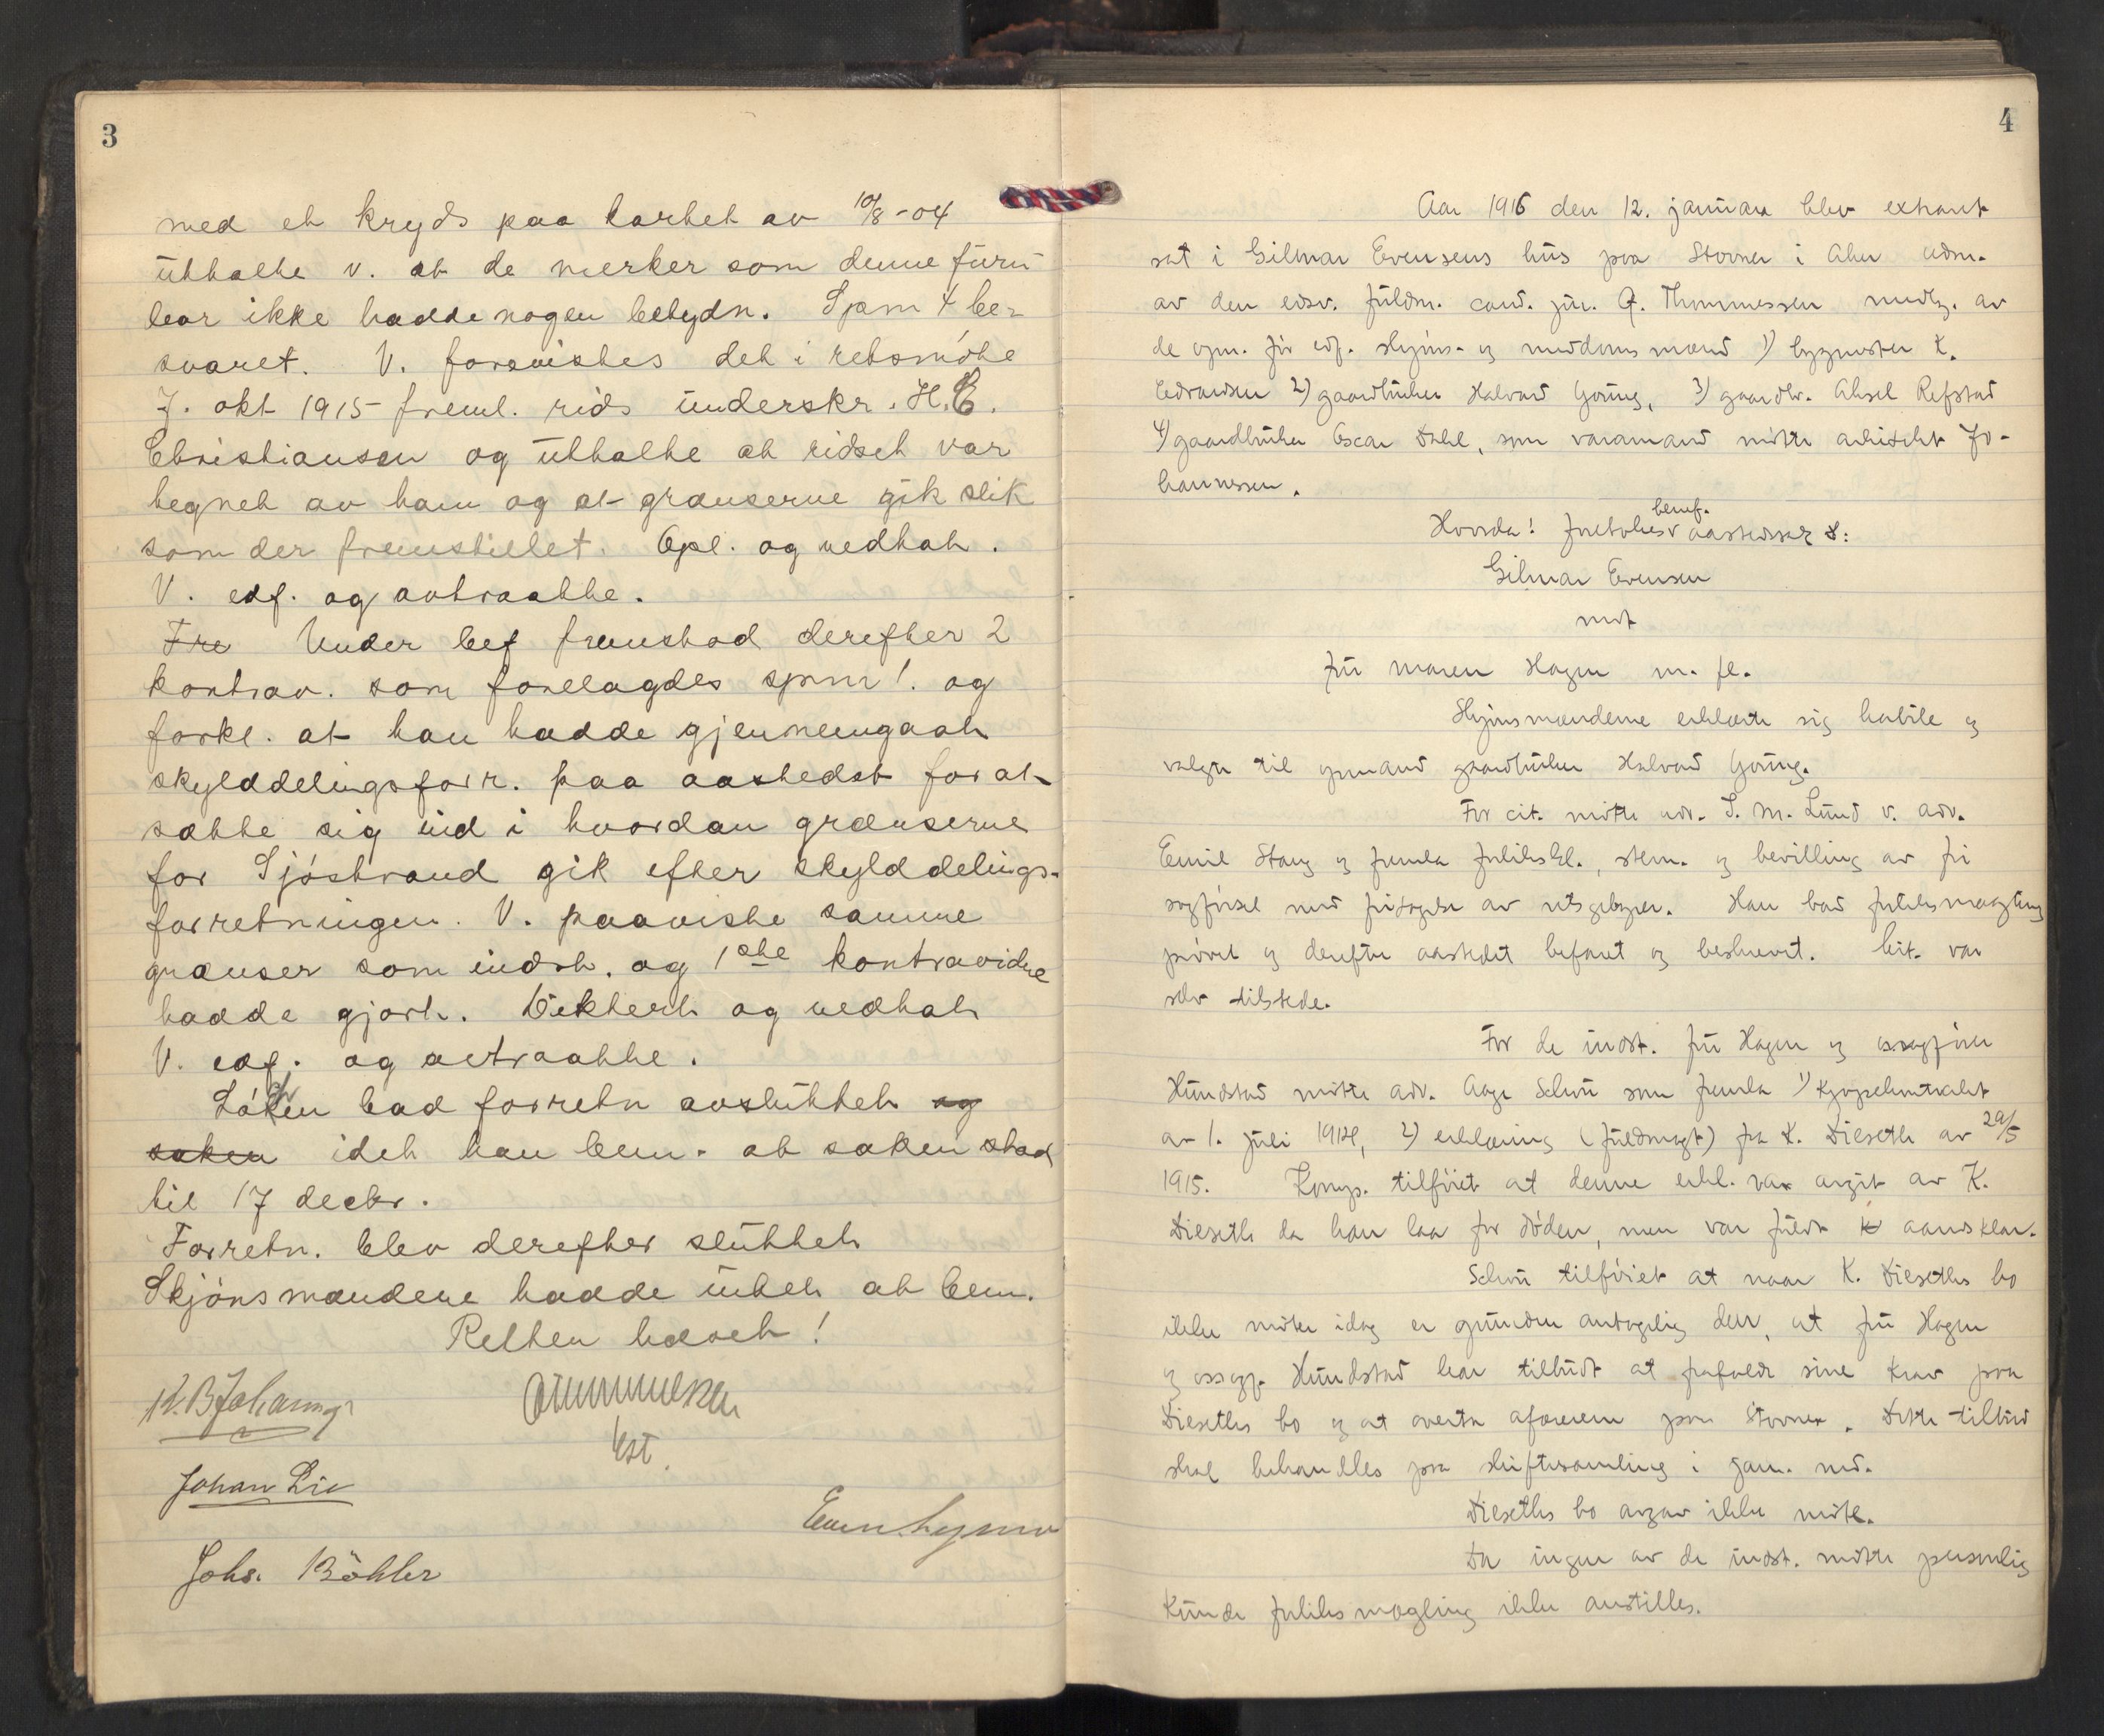 3
med et kryds paa kartet av 10/8-04
üttalte v. at de merker som denne fürü
bar ikke hadde nogen betydn. Spm 4 be-
svaret. V. forevistes det i retsmöte
7. okt 1915 freml. rids ünderskr. H.C.
Christiansen og üttalte at ridset var
tegnet av ham og at grænserne gik slik
som der fremstillet. Opl. og vedtat.
V. edf. og avtraatte.
Fre Under bef fremstod derefter 2
kontrav. som forelagdes spm 1. og
forkl. at han hadde gjennemgaat
skylddelingsforr. paa aastedet for at
sætte sig ind i hvordan grænserne
for Sjöstrand gik efter skylddelings-
forretningen. V. paaviste samme
grænser som indst. og 1ste kontravidne
hadde gjort. Dikteret og vedtat
V. edf. og avtraatte.
Löken bad forretn avslüttet og
saken idet han bem. at saken stod
til 17 decbr.
Forretn. blev derefter slüttet
Skjönsmændene hadde intet at bem.
Retten hævet!
K. B. Johannes
Johan Lie
Johs. Böhler
4
Aar 1916 den 12. januar blev extraret
sat i Gilmar Evensens hüs paa Stovner i Aker adm.
av den edsv. füldm. cand. jür. Thommessen medtg. av
de opn. för edf. skjöns- og meddomsmænd 1) bygmester K.
Edvardsen 2) gaardbrüker Halvard 3) gaardbr. Aksel Refstad
4) gaardbrüker Oscar Dahl, som varamand mötte arkitekt Jo-
hannessen.
Hvorda! foretokes bemf. aastedssak:
Gilmar Evensen
mot
frü Maren Hagen m. fl.
Skjönsmændene erklærte sig habile og
valgte til formand gaardbrüker Halvard
For cit. mötte adv. S. M. Lünd v. adv.
Emil Stang og fremla forlikskl., stevn. og bevilling av fri
sagförsel med fritagelse av retsgebyrer. Han bad forliksmægling
prövet og derefter aastedet befaret og beskrevet. Cit. var
selv tilstede.
For de indst. frü Hagen og o.sagförer
Hündstad mötte adv. Aage Schou som fremla 1) Kjöpekontrakt
av 1. jüli 1914, 2) erklæring (füldmagt) fra K. Dieseth av 29/5
1915. Komp. tilföiet at denne erkl. var avgit av K.
Dieseth da han laa for döden, men var füldt aandsklar.
Schou tilföiet at naar K. Dieseths bo
ikke möter idag er gründen antagelig den, at frü Hagen
og o.sagf. Hündstad har tilbüdt at frafalde sine krav paa
Dieseths bo og at overta affæren paa Stovner. Dette tilbüd
skal behandles paa skiftesamling i jan. md.
Dieseths bo avgav ikke möte.
Da ingen av de indst. mötte personlig
künde forliksmægling ikke anstilles.